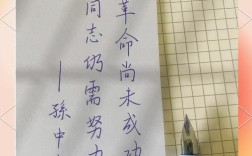 革命尚未成功
同志仍需努力
—孫中